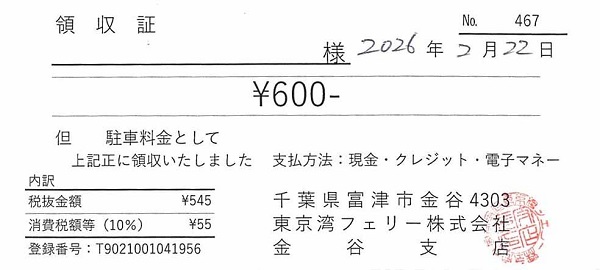 領収証
№ 467
様 2026年2月22日
¥600-
但 駐車料金として
上記正に領収いたしました 支払方法：現金・クレジット・電子マネー
内訳
税抜金額 ¥545
消費税額等（10%） ¥55
登録番号：T9021001041956
千葉県富津市金谷4303
東京湾フェリー株式会社
金谷支店